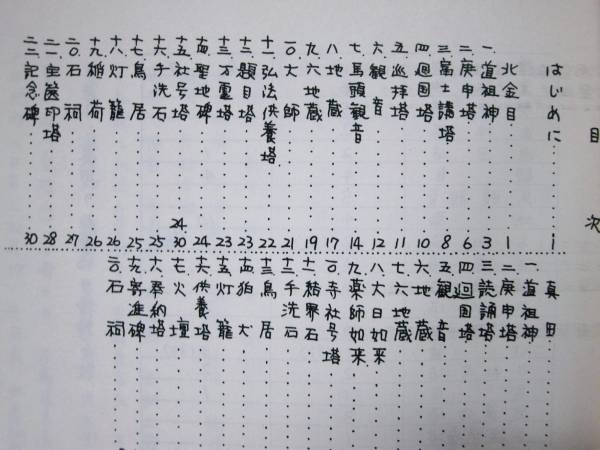 目次
はじめに……i
北金目……1
一、道祖神……3
二、庚申塔……6
三、富士講塔……8
四、廻国塔……10
五、巡拝塔……11
六、観音……12
七、馬頭観音……14
八、地蔵……17
九、六地蔵……19
一〇、大師……21
十一、弘法供養塔……22
十二、題目塔……23
十三、万霊塔……23
十四、聖地碑……24
十五、社号塔……24 30
十六、手洗石……25
十七、鳥居……25
十八、灯籠……26
十九、稲荷……26
二〇、石祠……27
二一、宝篋印塔……28
二二、記念碑……30
真田
一、道祖神……
二、庚申塔……
三、読誦塔……
四、廻国塔……
五、観音……
六、地蔵……
七、六地蔵……
八、大日如来……
九、薬師如来……
一〇、寺社号塔……
十一、結界石……
十二、手洗石……
十三、鳥居……
十四、狛犬……
十五、灯籠……
十六、供養塔……
十七、火壇……
十八、奉納塔……
十九、寄進碑……
二〇、石祠……